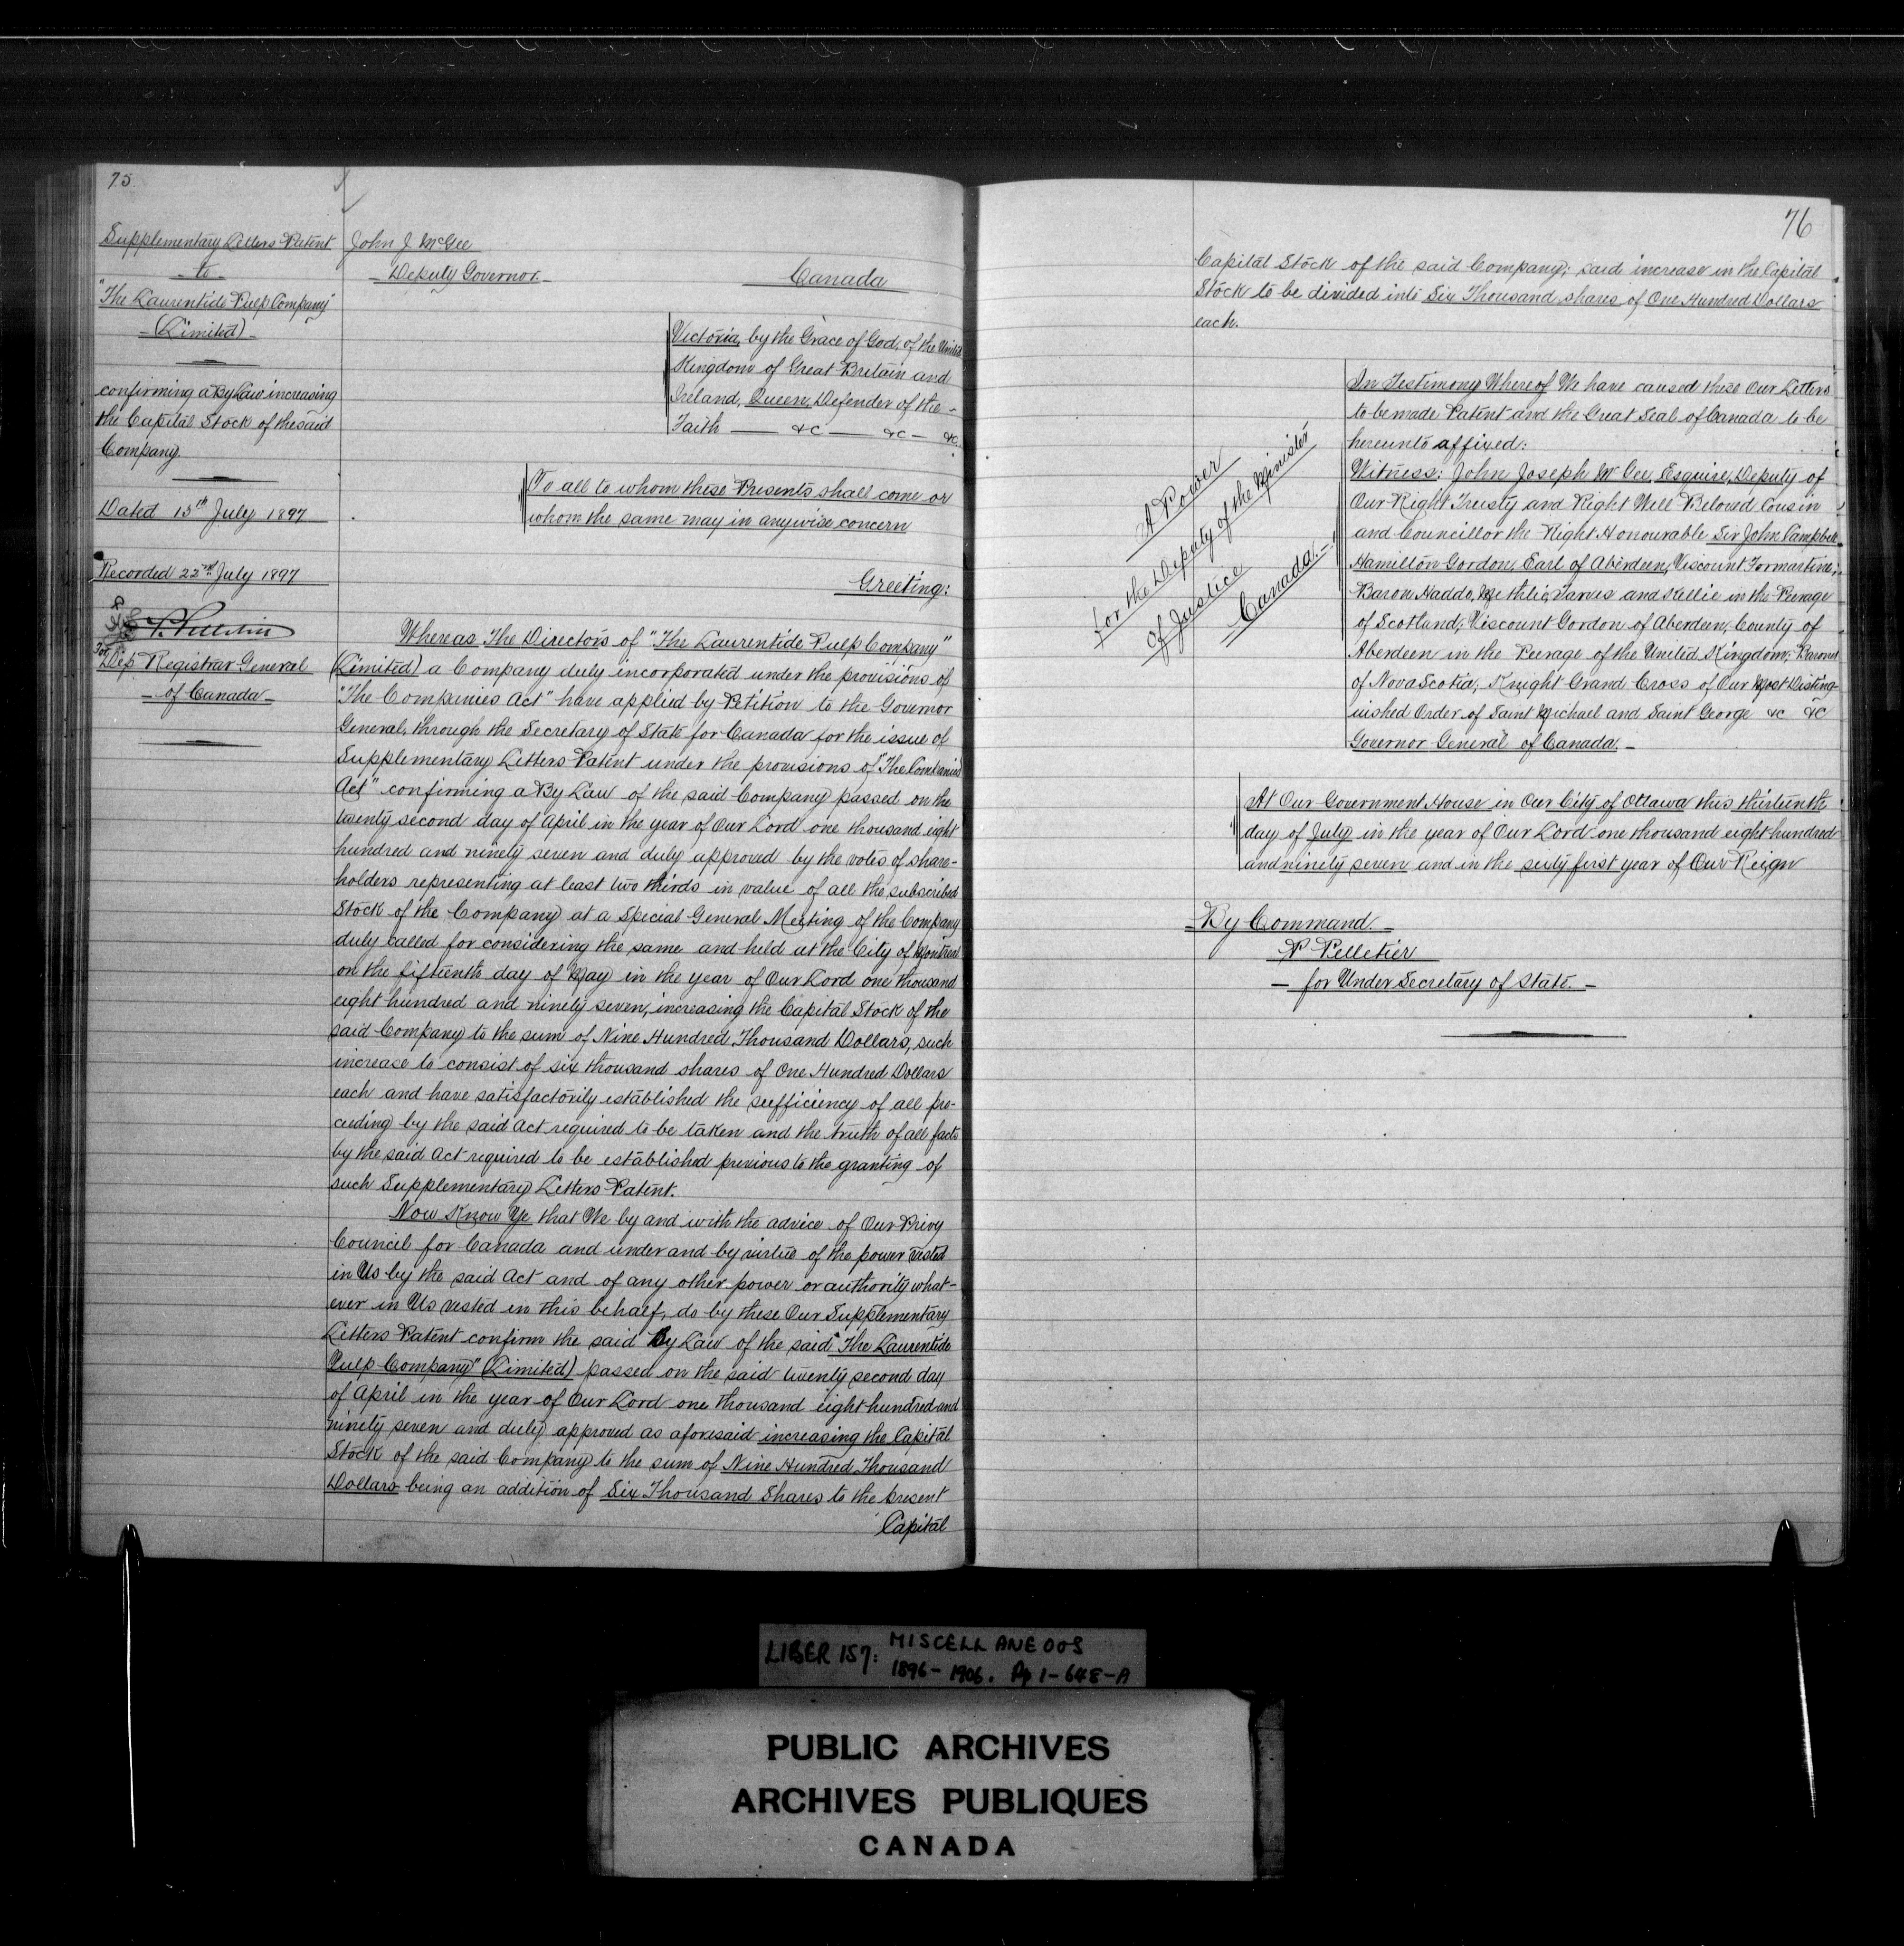 75
Supplementary Letters Patent
to
"The Laurentide Pulp Company"
(Limited)
confirming a By Law increasing
the Capital Stock of the said
Company.
Dated 13th July 1897
Recorded 22nd July 1897
For
Dep Registrar General
of Canada
John J. McGee
Deputy Governor.
Canada
Victoria, by the Grace of God, of the United
Kingdom of Great Britain and
Ireland, Queen, Defender of the
Faith — &c — &c — &c.
To all to whom these Presents shall come or
whom the same may in anywise concern
Greeting:
Whereas The Directors of "The Laurentide Pulp Company"
(Limited) a Company duly incorporated under the provisions of
"The Companies Act" have applied by Petition to the Governor
General, through the Secretary of State for Canada for the issue of
Supplementary Letters Patent under the provisions of "The Companies
Act" confirming a By Law of the said Company passed on the
twenty second day of April in the year of Our Lord one thousand eight
hundred and ninety seven and duly approved by the votes of share-
holders representing at least two thirds in value of all the subscribed
Stock of the Company at a Special General Meeting of the Company
duly called for considering the same and held at the City of Montreal
on the fifteenth day of May in the year of Our Lord one thousand
eight hundred and ninety seven, increasing the Capital Stock of the
said Company to the sum of Nine Hundred Thousand Dollars, such
increase to consist of six thousand shares of One Hundred Dollars
each and have satisfactorily established the sufficiency of all pro-
ceeding by the said Act required to be taken and the truth of all facts
by the said Act required to be established previous to the granting of
such Supplementary Letters Patent.
Now Know Ye that We by and with the advice of Our Privy
Council for Canada and under and by virtue of the power vested
in Us by the said Act and of any other power or authority what-
ever in Us vested in this behalf, do by these Our Supplementary
Letters Patent confirm the said By Law of the said "The Laurentide
Pulp Company" (Limited) passed on the said twenty second day
of April in the year of Our Lord one thousand eight hundred and
ninety seven and duly approved as aforesaid increasing the Capital
Stock of the said Company to the sum of Nine Hundred Thousand
Dollars being an addition of Six Thousand Shares to the present
Capital
76
Capital Stock of the said Company; said increase in the Capital
Stock to be divided into Six Thousand shares of One Hundred Dollars
each.
In Testimony Whereof We have caused these Our Letters
to be made Patent and the Great Seal of Canada to be
hereunto affixed:
Witness: John Joseph McGee, Esquire, Deputy of
Our Right Trusty and Right Well Beloved Cousin
and Councillor the Right Honourable Sir John Campbell
Hamilton Gordon, Earl of Aberdeen, Viscount Formartine,
Baron Haddo, Methlic, Tarves and Kellie in the Peerage
of Scotland; Viscount Gordon of Aberdeen, County of
Aberdeen in the Peerage of the United Kingdom; Baronet
of Nova Scotia; Knight Grand Cross of Our Most Disting-
uished Order of Saint Michael and Saint George &c &c
Governor General of Canada.
A Power
for the Deputy of the Minister
of Justice
Canada.
At Our Government House in Our City of Ottawa this thirteenth
day of July in the year of Our Lord one thousand eight hundred
and ninety seven and in the sixty first year of Our Reign
By Command.
P Pelletier
for Under Secretary of State.
LIBER 157: MISCELLANEOUS
1896-1906. Pp 1-648-A
PUBLIC ARCHIVES
ARCHIVES PUBLIQUES
CANADA